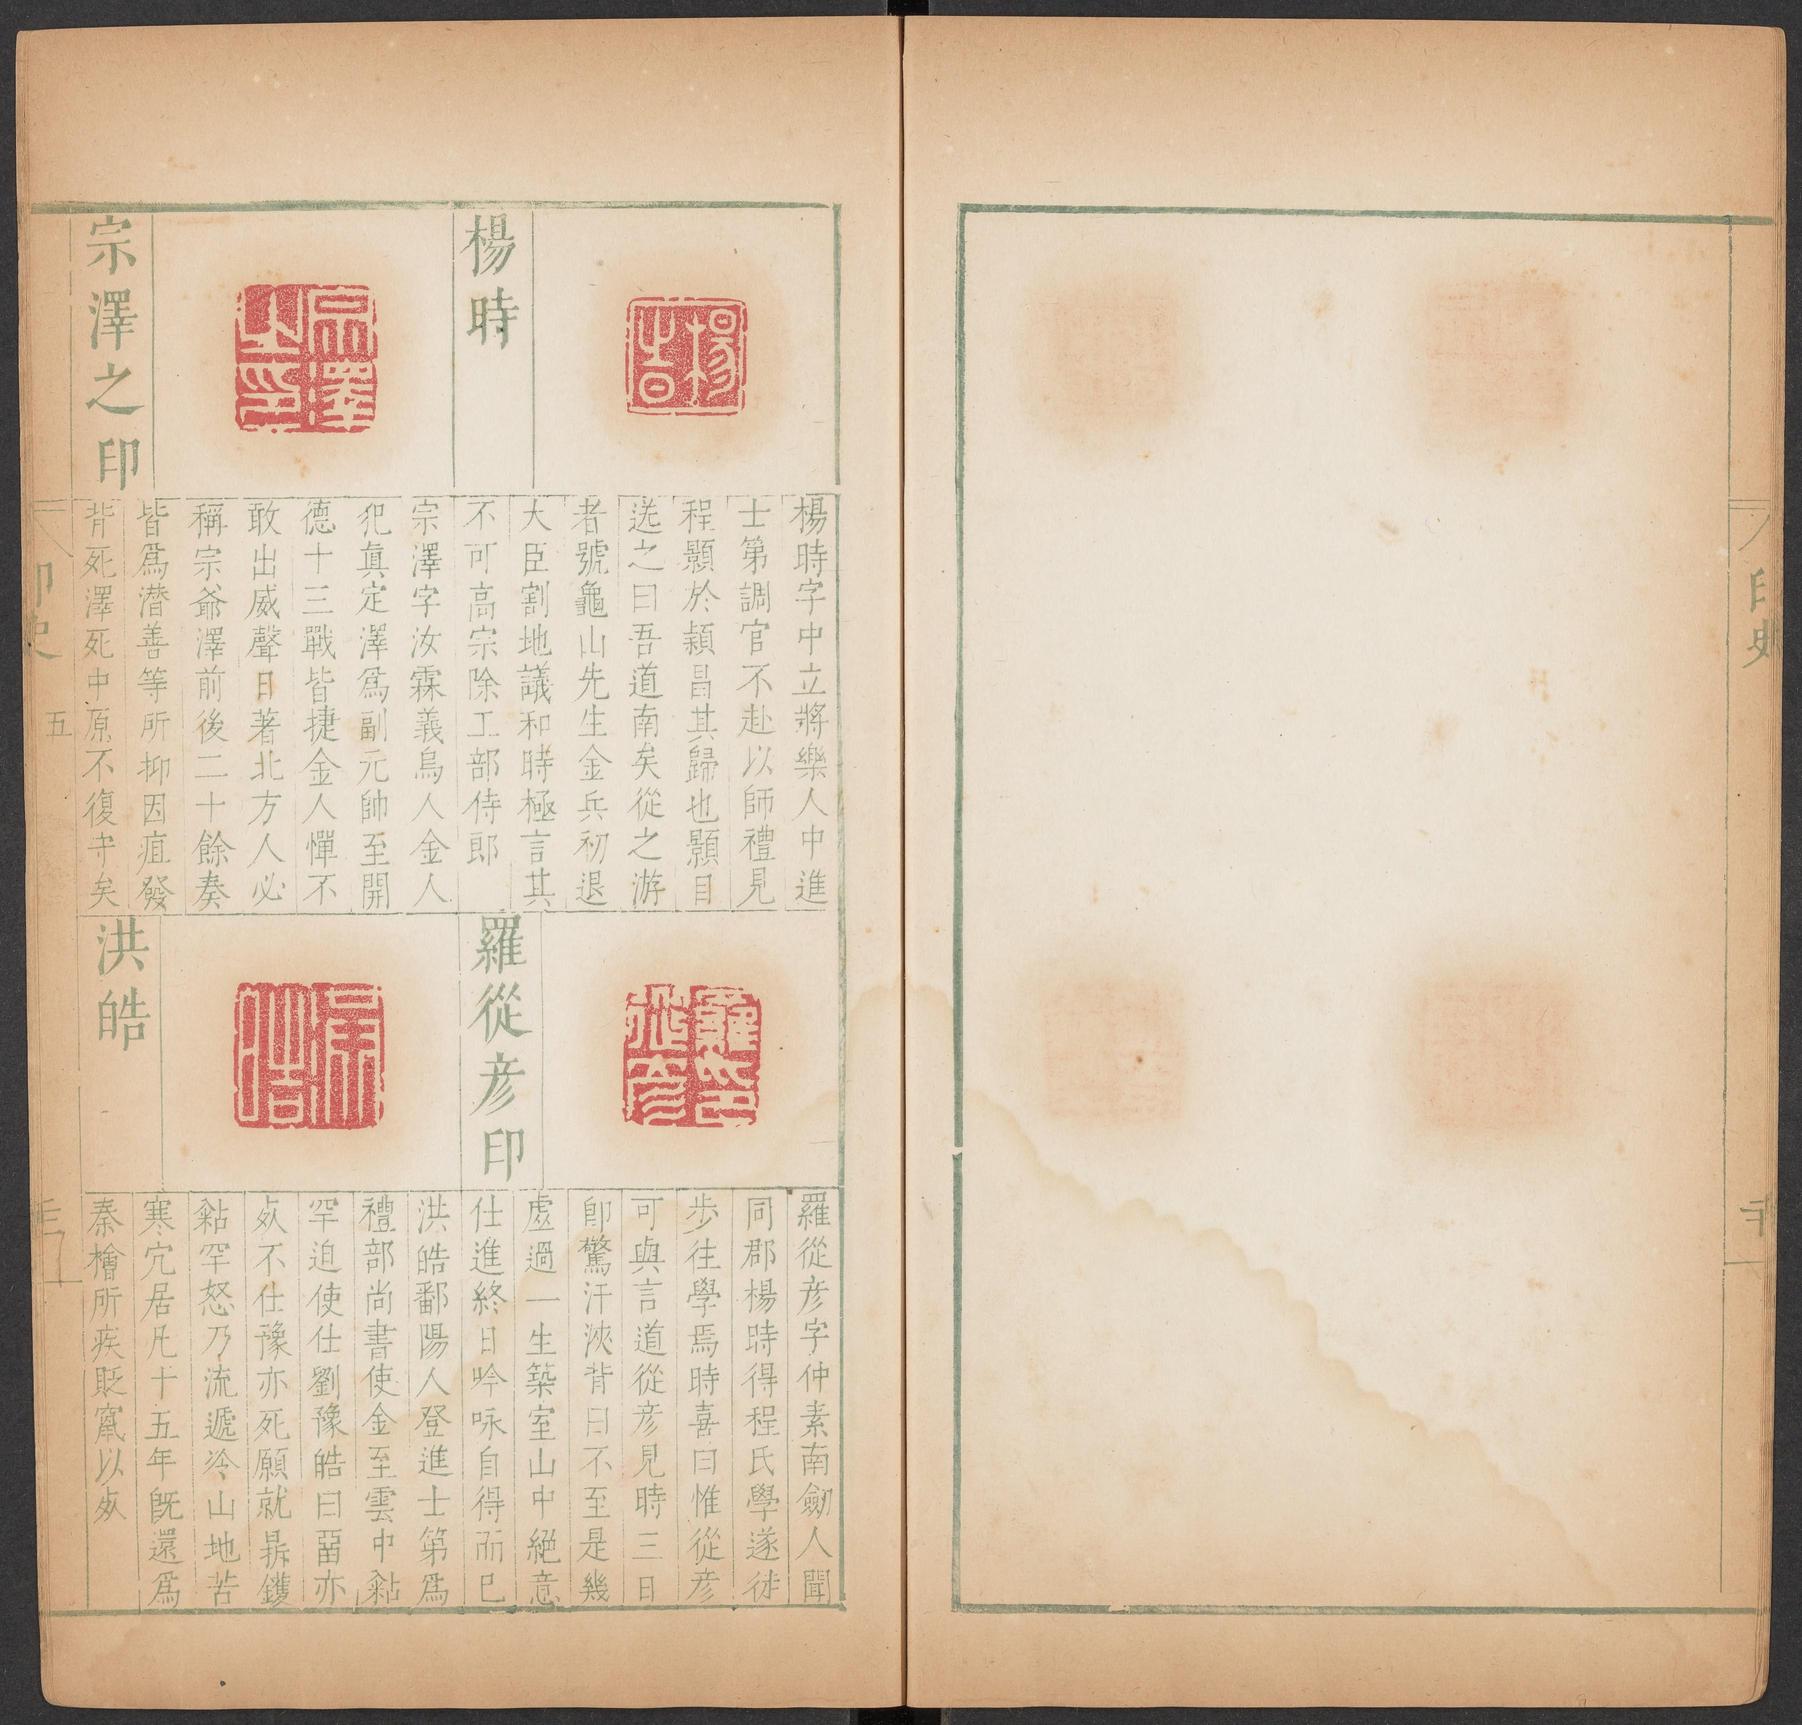 印史
楊時
楊時字中立將樂人中進
士第調官不赴以師禮見
程顥於潁昌其歸也顥目
送之曰吾道南矣從之游
者號龜山先生金兵初退
大臣割地議和時極言其
不可高宗除工部侍郎
宗澤之印
宗澤字汝霖義烏人金人
犯眞定澤爲副元帥至開
德十三戰皆捷金人憚不
敢出威聲日著北方人必
稱宗爺澤前後二十餘奏
皆爲潛善等所抑因疽發
背死澤死中原不復守矣
羅從彥印
羅從彥字仲素南劒人聞
同郡楊時得程氏學遂徒
步往學焉時喜曰惟從彥
可與言道從彥見時三日
卽驚汗浹背曰不至是幾
虛過一生築室山中絕意
仕進終日吟咏自得而已
洪皓
洪皓鄱陽人登進士第爲
禮部尚書使金至雲中粘
罕迫使仕劉豫皓曰畱亦
死不仕豫亦死願就鼎鑊
粘罕怒乃流遞冷山地苦
寒穴居凡十五年旣還爲
秦檜所疾貶竄以死
印史
五